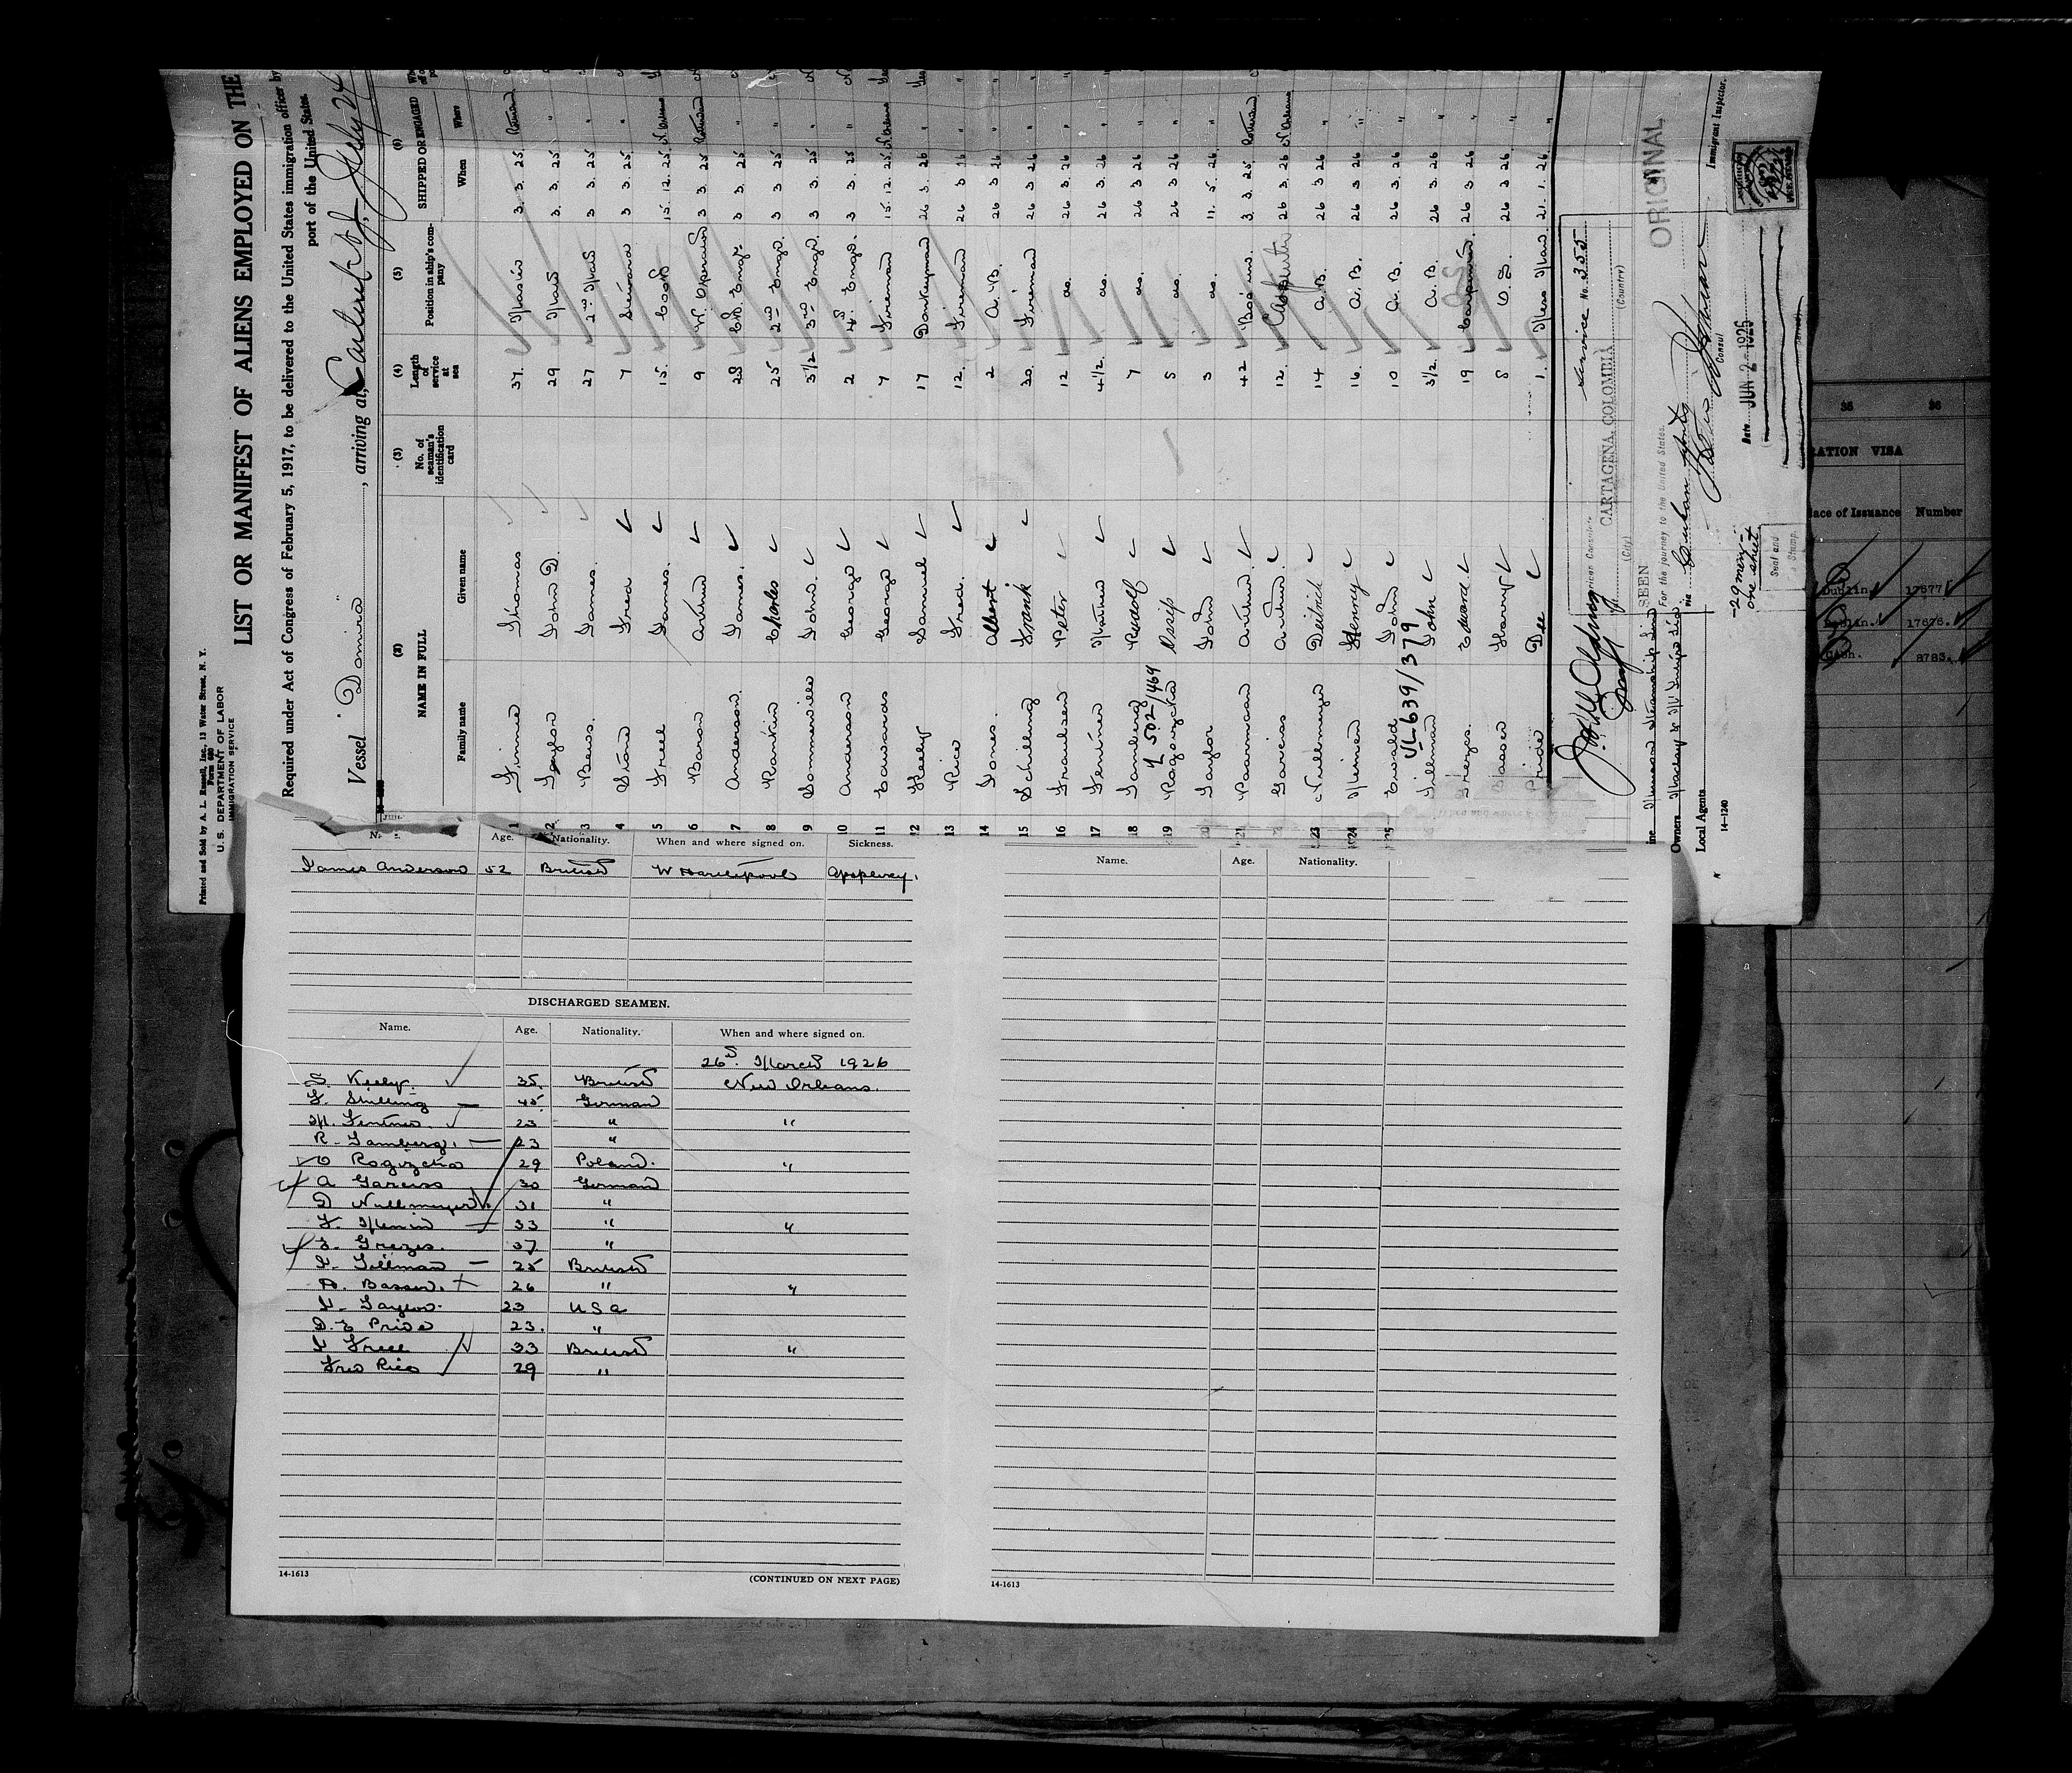 Printed and Sold by A. L. Russell, Inc., 13 Water Street, N. Y.
Form 680
U. S. DEPARTMENT OF LABOR
IMMIGRATION SERVICE
LIST OR MANIFEST OF ALIENS EMPLOYED ON THE
Required under Act of Congress of February 5, 1917, to be delivered to the United States immigration officer by
port of the United States.
Vessel "Domira", arriving at July 24
(2) (3) (4) (5) (6)
NAME IN FULL No. of seaman's identification card Length of service at sea Position in ship's company SHIPPED OR ENGAGED
Family name Given name When Where
1 Finnie Thomas 37 Master 3. 3. 25
2 Taylor John D. 29 Mate 3. 3. 25 "
3 Bews. James. 27 2nd Mate 3 3. 25 "
4 Fred 7 Steward 3 3. 25 "
5 Freel James. 15. Cook 15. 12. 25 N Orleans
6 Baron Arthur 9 W. Operator 3 3 25
7 Anderson James. Ch. Engr. 3 3. 25 "
8 Rankin Charles 25 2nd Engr. 3 3. 25 "
9 Sommerville John. 3 1/2 3rd Engr. 3 3. 25 "
10 Anderson George 2 4th Engr. 3 3. 25 "
11 Edwards George 7 Fireman 15. 12. 25 N Orleans
12 Keely Samuel 17 Donkeyman 26 3. 26 "
13 Rice Fred. 12. Fireman 26 3 26 "
14 Jones. Albert 2 A. B. 26 3 26 "
15 Schilling Frank 30 Fireman 26 3 26 "
16 Fraulsen Peter 12 do. 26 3. 26 "
17 Fentner 4 1/2. do. 26 3. 26 "
18 Tamberg Rudolf 7 do. 26 3 26 "
V 502/469
19 Rogozycha Osip 5 do. 26 3 26 "
20 Taylor John 3 do. 11. 5. 26. "
21 Paarman Arthur. 42 Bos'un. 3 3. 25
22 Garciss Arthur. 12. Carpenter 26 3. 26 N Orleans
23 Nullmeyer Deitrich 14 A. B. 26 3 26 "
24 Henry 16. A. B. 26 3 26 "
25 Ewalde John 10 A. B. 26 3. 26 "
VL-639/379
Tillman John 3 1/2. A. B. 26 3 26 "
Grezes. Edward 19 26 3 26 "
Basser Harry 5 O. S. 26 3 26 "
Pride Dee 1. Mess Man. 21. 1. 26. "
Service No. 355
American Consulate
CARTAGENA, COLOMBIA
(City) (Country)
SEEN
ORIGINAL
For the journey to the United States.
via Cuban ports
Consul
Date JUN 2 - 1926
-29 men-
one sheet
Seal and
Stamp.
Immigrant Inspector.
Line Munson Steamship Line
Owners
Local Agents
14-1240
35 36
RATION VISA
lace of Issuance Number
Dublin. 17677
Dublin. 17676.
8783.
Age. Nationality. When and where signed on. Sickness.
James Anderson 52 British W Hartlepool Apoplexy.
DISCHARGED SEAMEN.
Name. Age. Nationality. When and where signed on.
26th. March 1926
S. Keely. 35. British New Orleans.
F. Shilling 45. German
M. Fentner. 23 " "
R. Tamberg. 23 "
O Rogozcha 29 Poland. "
A Garciss 30 German
D Nullmeyer 31 "
33 " "
E. Grezes. 37 "
J. Tillman 25 British
H. Basser. 26 " "
J. Taylor. 23 USA
D. E Pride 23. "
J Freel 33 British "
Fred Rice 29 "
14-1613 (CONTINUED ON NEXT PAGE)
Name. Age. Nationality.
14-1613